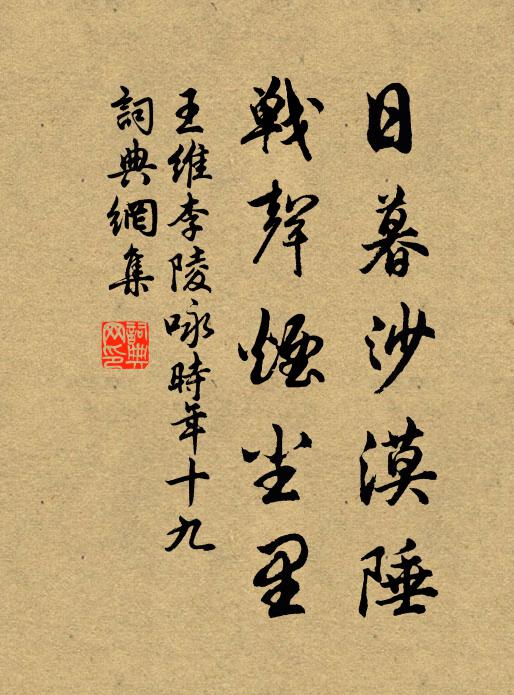 日暮沙漠陲
戰聲煙尘里
王維李陵咏時年十九
詞典網集
詞典网印